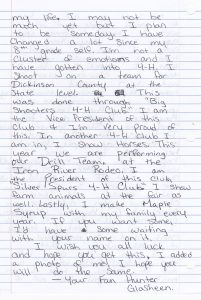 my life. I may not be
much yet but I plan
to be someday. I have
changed a lot since my
8th grade self. I'm not a
cluster of emotions and I
have gotten into 4-H. I
shoot on a team for
Dickinson County at the
State level. This
was done through "Big
Shooters 4-H Club." I am
the Vice President of this
Club & I'm very proud of
this. In another 4-H Club I
am in, I show Horses. This
year we are performing
our Drill Team at the
Iron River Rodeo. I am
the President of this club
"Silver Spurs 4-H Club." I show
farm animals at the fair as
well. Lastly, I make Maple
Syrup with my family every
year. If you want some,
I'd have some waiting
with your name on it.
I wish you all luck
and hope you get this. I added
a photo of me, I hope you
will do the same.
- Your Fan Hunter
Glasheen.